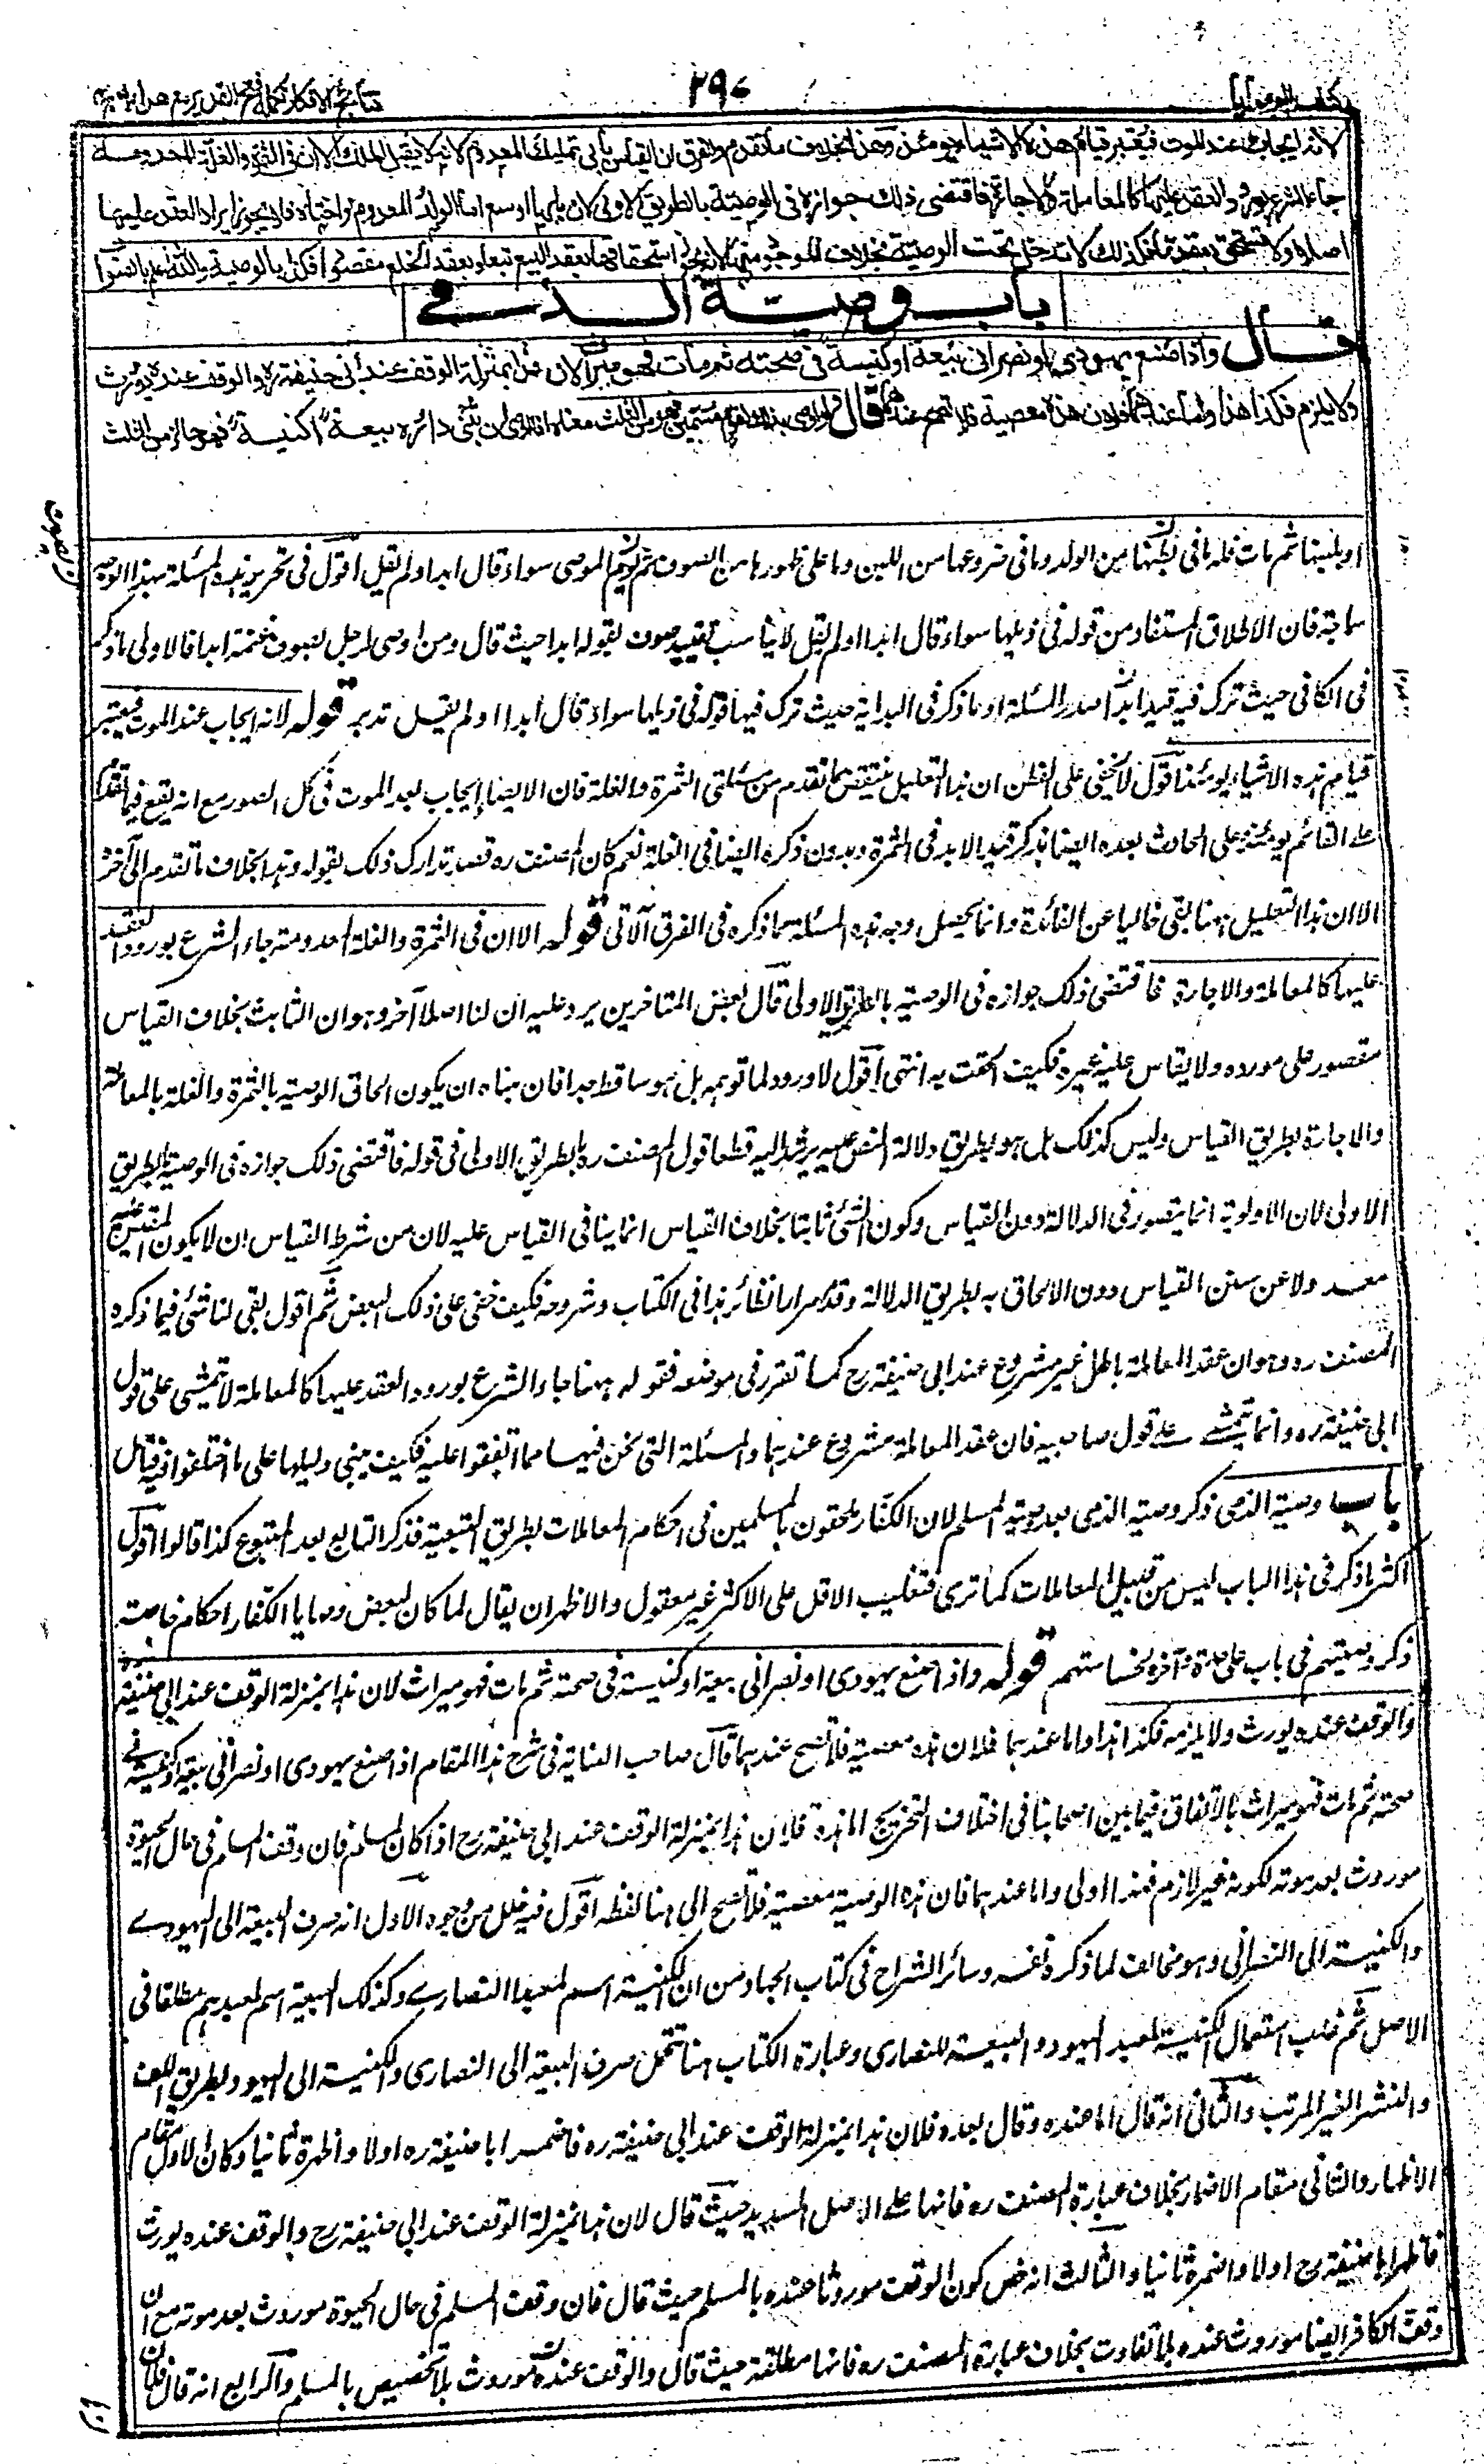 كتاب الوصايا
٢٩٠
نتائج الافكار تكملة فتح القدير مع هداية
لانه ايجاب عند الموت فيعتبر قيام هذه الاشياء يومئذ وهذا بخلاف ما تقدم والفرق ان القياس يأبى تمليك المعدوم لانه لا يقبل الملك الا ان فى الثمرة والغلة المعدومة
جاء الشرع بورود العقد عليها كالمعاملة والاجارة فاقتضى ذلك جوازه فى الوصية بالطريق الاولى لان بابها اوسع اما الولد المعدوم واختاه فلا يجوز ايراد العقد عليها
اصلا ولا تستحق بعقد ما فكذلك لا تدخل تحت الوصية بخلاف الموجود منها لانه يجوز استحقاقها بعقد البيع تبعا وبعقد الخلع مقصودا فكذا بالوصية والله اعلم بالصواب
باب وصية الذمى
قال واذا صنع يهودى او نصرانى بيعة او كنيسة فى صحته ثم مات فهو ميراث لان هذا بمنزلة الوقف عند أبى حنيفة ره والوقف عنده يورث
ولا يلزم فكذا هذا واما عندهما فلان هذه معصية فلا تصح عندهما قال ولو اوصى بذلك لقوم مسمين فهو من الثلث معناه اذا اوصى ان تبنى داره بيعة او كنيسة فهو جائز من الثلث
او بلبنها ثم مات فله ما فى بطنها من الولد وما فى ضروعها من اللبن وما على ظهورها من الصوف يوم يموت الموصى سواء قال ابدا او لم يقل اقول فى تحرير هذه المسئلة بهذا الوجه
سماجة فان الاطلاق المستفاد من قوله فى ذيلها سواء قال ابدا او لم يقل لا يناسب تقييد صوف بقوله ابدا حيث قال ومن اوصى لرجل بصوف غنمه ابدا فالاولى ما ذكر
فى الكافى حيث ترك فيه قيد ابدا فى صدر المسئلة او ما ذكر فى البداية حيث ترك فيها قوله فى ذيلها سواء قال ابدا او لم يقل تدبر قوله لانه ايجاب عند الموت فيعتبر
قيام هذه الاشياء يومئذ اقول لا يخفى على الفطن ان هذا التعليل منتقض بما تقدم من مسئلتى الثمرة والغلة فان الايصاء ايجاب بعد الموت فى كل الصور مع انه يقع فيما تقدم
على القائم يومئذ وعلى الحادث بعده ايضا بذكر قيد الابد فى الثمرة وبدون ذكره ايضا فى الغلة نعم كان المصنف ره قصد تدارك ذلك بقوله وهذا بخلاف ما تقدم الى آخره
الا ان هذا التعليل ههنا يبقى خاليا عن الفائدة وانما يحصل وجه هذه المسئلة بما ذكره فى الفرق الآتى قوله الا ان فى الثمرة والغلة المعدومة جاء الشرع بورود العقد
عليها كالمعاملة والاجارة فاقتضى ذلك جوازه فى الوصية بالطريق الاولى قال بعض المتاخرين يرد عليه ان لنا اصلا آخر وهو ان الثابت بخلاف القياس
مقصور على مورده ولا يقاس عليه غيره فكيف الحقت به انتهى اقول لا ورود لما توهمه بل هو ساقط جدا فان مبناه ان يكون الحاق الوصية بالثمرة والغلة بالمعاملة
والاجارة بطريق القياس وليس كذلك بل هو بطريق دلالة النص يرشد اليه قطعا قول المصنف ره بالطريق الاولى فى قوله فاقتضى ذلك جوازه فى الوصية بالطريق
الاولى لان الاولوية انما يتصور فى الدلالة دون القياس وكون الشئ ثابتا بخلاف القياس انما ينافى القياس عليه لان من شرط القياس ان لا يكون المقيس عليه
معدولا عن سنن القياس دون الالحاق به بطريق الدلالة وقد مر مرارا نظائر هذا فى الكتاب وشروحه فكيف خفى على ذلك البعض ثم اقول بقى لنا شئ فيما ذكره
المصنف ره وهو ان عقد المعاملة باطل غير مشروع عند ابى حنيفة رح كما تقرر فى موضعه فقوله ههنا جاء الشرع بورود العقد عليها كالمعاملة لا يتمشى على قول
ابى حنيفة ره وانما يتمشى على قول صاحبيه فان عقد المعاملة مشروع عندهما والمسئلة التى نحن فيها مما اتفقوا عليه فكيف يبنى دليلها على ما اختلفوا فيه فتأمل
باب وصية الذمى ذكر وصية الذمى بعد وصية المسلم لان الكفار ملحقون بالمسلمين فى احكام المعاملات بطريق التبعية فذكر التابع بعد المتبوع كذا قالوا اقول
اكثر ما ذكر فى هذا الباب ليس من قبيل المعاملات كما ترى فتغليب الاقل على الاكثر غير معقول والاظهر ان يقال لما كان لبعض وصايا الكفار احكام خاصة
ذكر وصيتهم فى باب على حدة وآخره لخساستهم قوله واذا صنع يهودى او نصرانى بيعة او كنيسة فى صحته ثم مات فهو ميراث لان هذا بمنزلة الوقف عند ابى حنيفة
والوقف عنده يورث ولا يلزم فكذا هذا واما عندهما فلان هذه معصية فلا تصح عندهما قال صاحب العناية فى شرح هذا المقام اذا صنع يهودى او نصرانى بيعة او كنيسة فى
صحته ثم مات فهو ميراث بالاتفاق فيما بين اصحابنا فى اختلاف التخريج اما عنده فلان هذا بمنزلة الوقف عند ابى حنيفة رح اذا كان لمسلم فان وقف المسلم فى حال الحيوة
موروث بعد موته لكونه غير لازم فهذا اولى واما عندهما فان هذه الوصية معصية فلا تصح الى هنا لفظه اقول فيه خلل من وجوه الاول انه صرف البيعة الى اليهودى
والكنيسة الى النصرانى وهو مخالف لما ذكره نفسه وسائر الشراح فى كتاب الجهاد من ان الكنيسة اسم لمعبد النصارى وكذلك البيعة اسم لمعبدهم مطلقا فى
الاصل ثم غلب استعمال الكنيسة لمعبد اليهود والبيعة للنصارى وعبارة الكتاب هنا تحتمل صرف البيعة الى النصارى والكنيسة الى اليهود بطريق اللف
والنشر الغير المرتب والثانى انه قال اما عنده وقال بعده فلان هذا بمنزلة الوقف عند ابى حنيفة ره فاضمر ابا حنيفة ره اولا واظهره ثانيا وكان الاول مقام
الاظهار والثانى مقام الاضمار بخلاف عبارة المصنف ره فانها على الاصل السديد حيث قال لان هذا بمنزلة الوقف عند ابى حنيفة رح والوقف عنده يورث
فاظهر ابا حنيفة رح اولا واضمره ثانيا والثالث انه خص كون الوقف موروثا عنده بالمسلم حيث قال فان وقف المسلم فى حال الحيوة موروث بعد موته مع ان
وقف الكافر ايضا موروث عنده بلا تفاوت بخلاف عبارة المصنف ره فانها مطلقة حيث قال والوقف عنده موروث بلا تخصيص بالمسلم والرابع انه قال فان